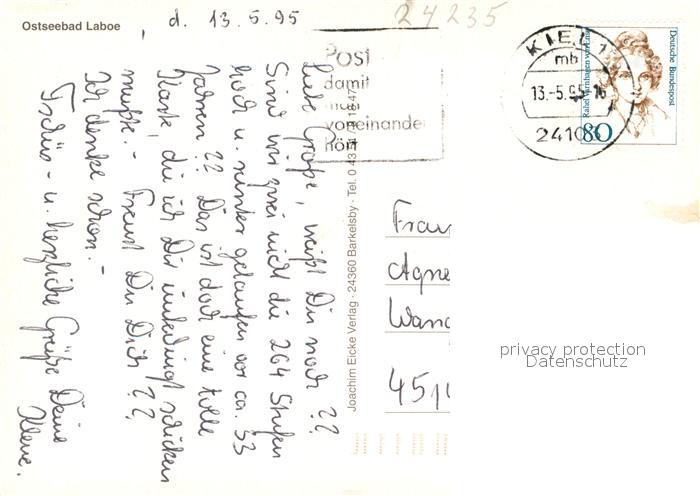 Ostseebad Laboe
, d. 13.5.95
24235
Liebe Große, weißt Du noch ??
Sind wir zwei nicht die 264 Stufen
hoch u. runter gelaufen vor ca. 53
Jahren ?? Das ist doch eine tolle
Karte, die ich Dir unbedingt schicken
mußte. - Freust Du Dich ??
Ich denke schon. -
Tschüs - u. herzliche Grüße Deine
Kleine.
Post
damit
man
voneinander
hört
Joachim Eicke Verlag · 24360 Barkelsby · Tel. 0 43
KIEL 1
mb
13.-5.95-16
2410
Deutsche Bundespost
Rahel Varnhagen von Ense
80
Frau
Agne
Wan
451
privacy protection
Datenschutz